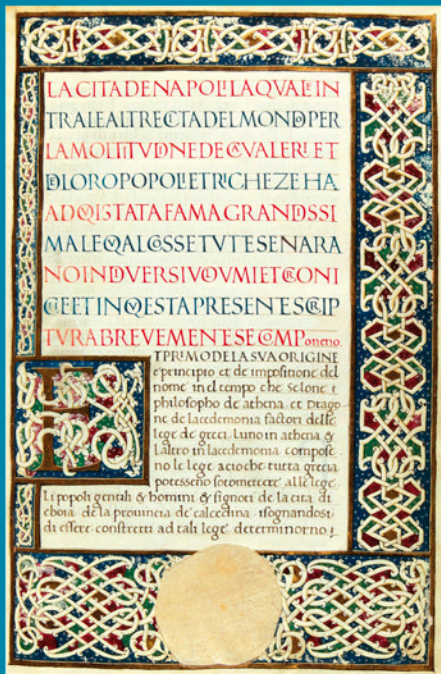 LA CITA DE NAPOLI LA QVALE IN
TRA LE ALTRE CITA DEL MONDO PER
LA MOLTITVDINE DE CAVALERI ET
DI LORO POPOLI ET RICHEZE HA
ADQISTATA FAMA GRANDISSI
MA LE QALI COSSE TVTE SE NARA
NO IN DIVERSI VOLVMI ET CRONI
CE ET IN QESTA PRESENTE SCRIP
TVRA BREVEMENTE SE COMPoneno.
ET PRIMO DE LA SVA ORIGINE
e principio et de impositione del
nome in el tempo che Solone
philosopho de athena et Drago
ne de lacedemonia factori delle
lege de greci luno in athena &
laltro in lacedemonia compose
no le lege acioche tutta grecia
potesseno sotomettere alle lege
Li popoli gentili & homini & signori de la cita di
eboia de la prouincia de calcedina isognandosi
di essere constretti ad tali lege determinorno